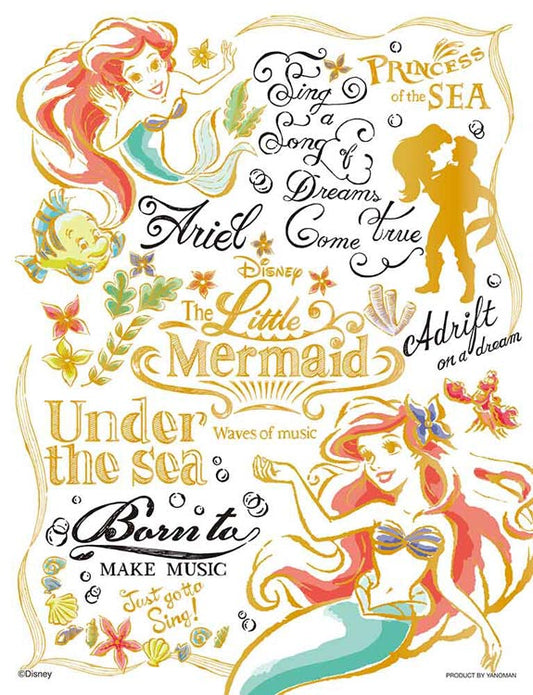 PRINCESS
of the SEA
Sing
a
Song of
Dreams
Come true
Ariel
DISNEY
The Little
Mermaid
Adrift
on a dream
Under
the sea
Waves of music
Born to
MAKE MUSIC
Just gotta
Sing!
©Disney
PRODUCT BY YANOMAN